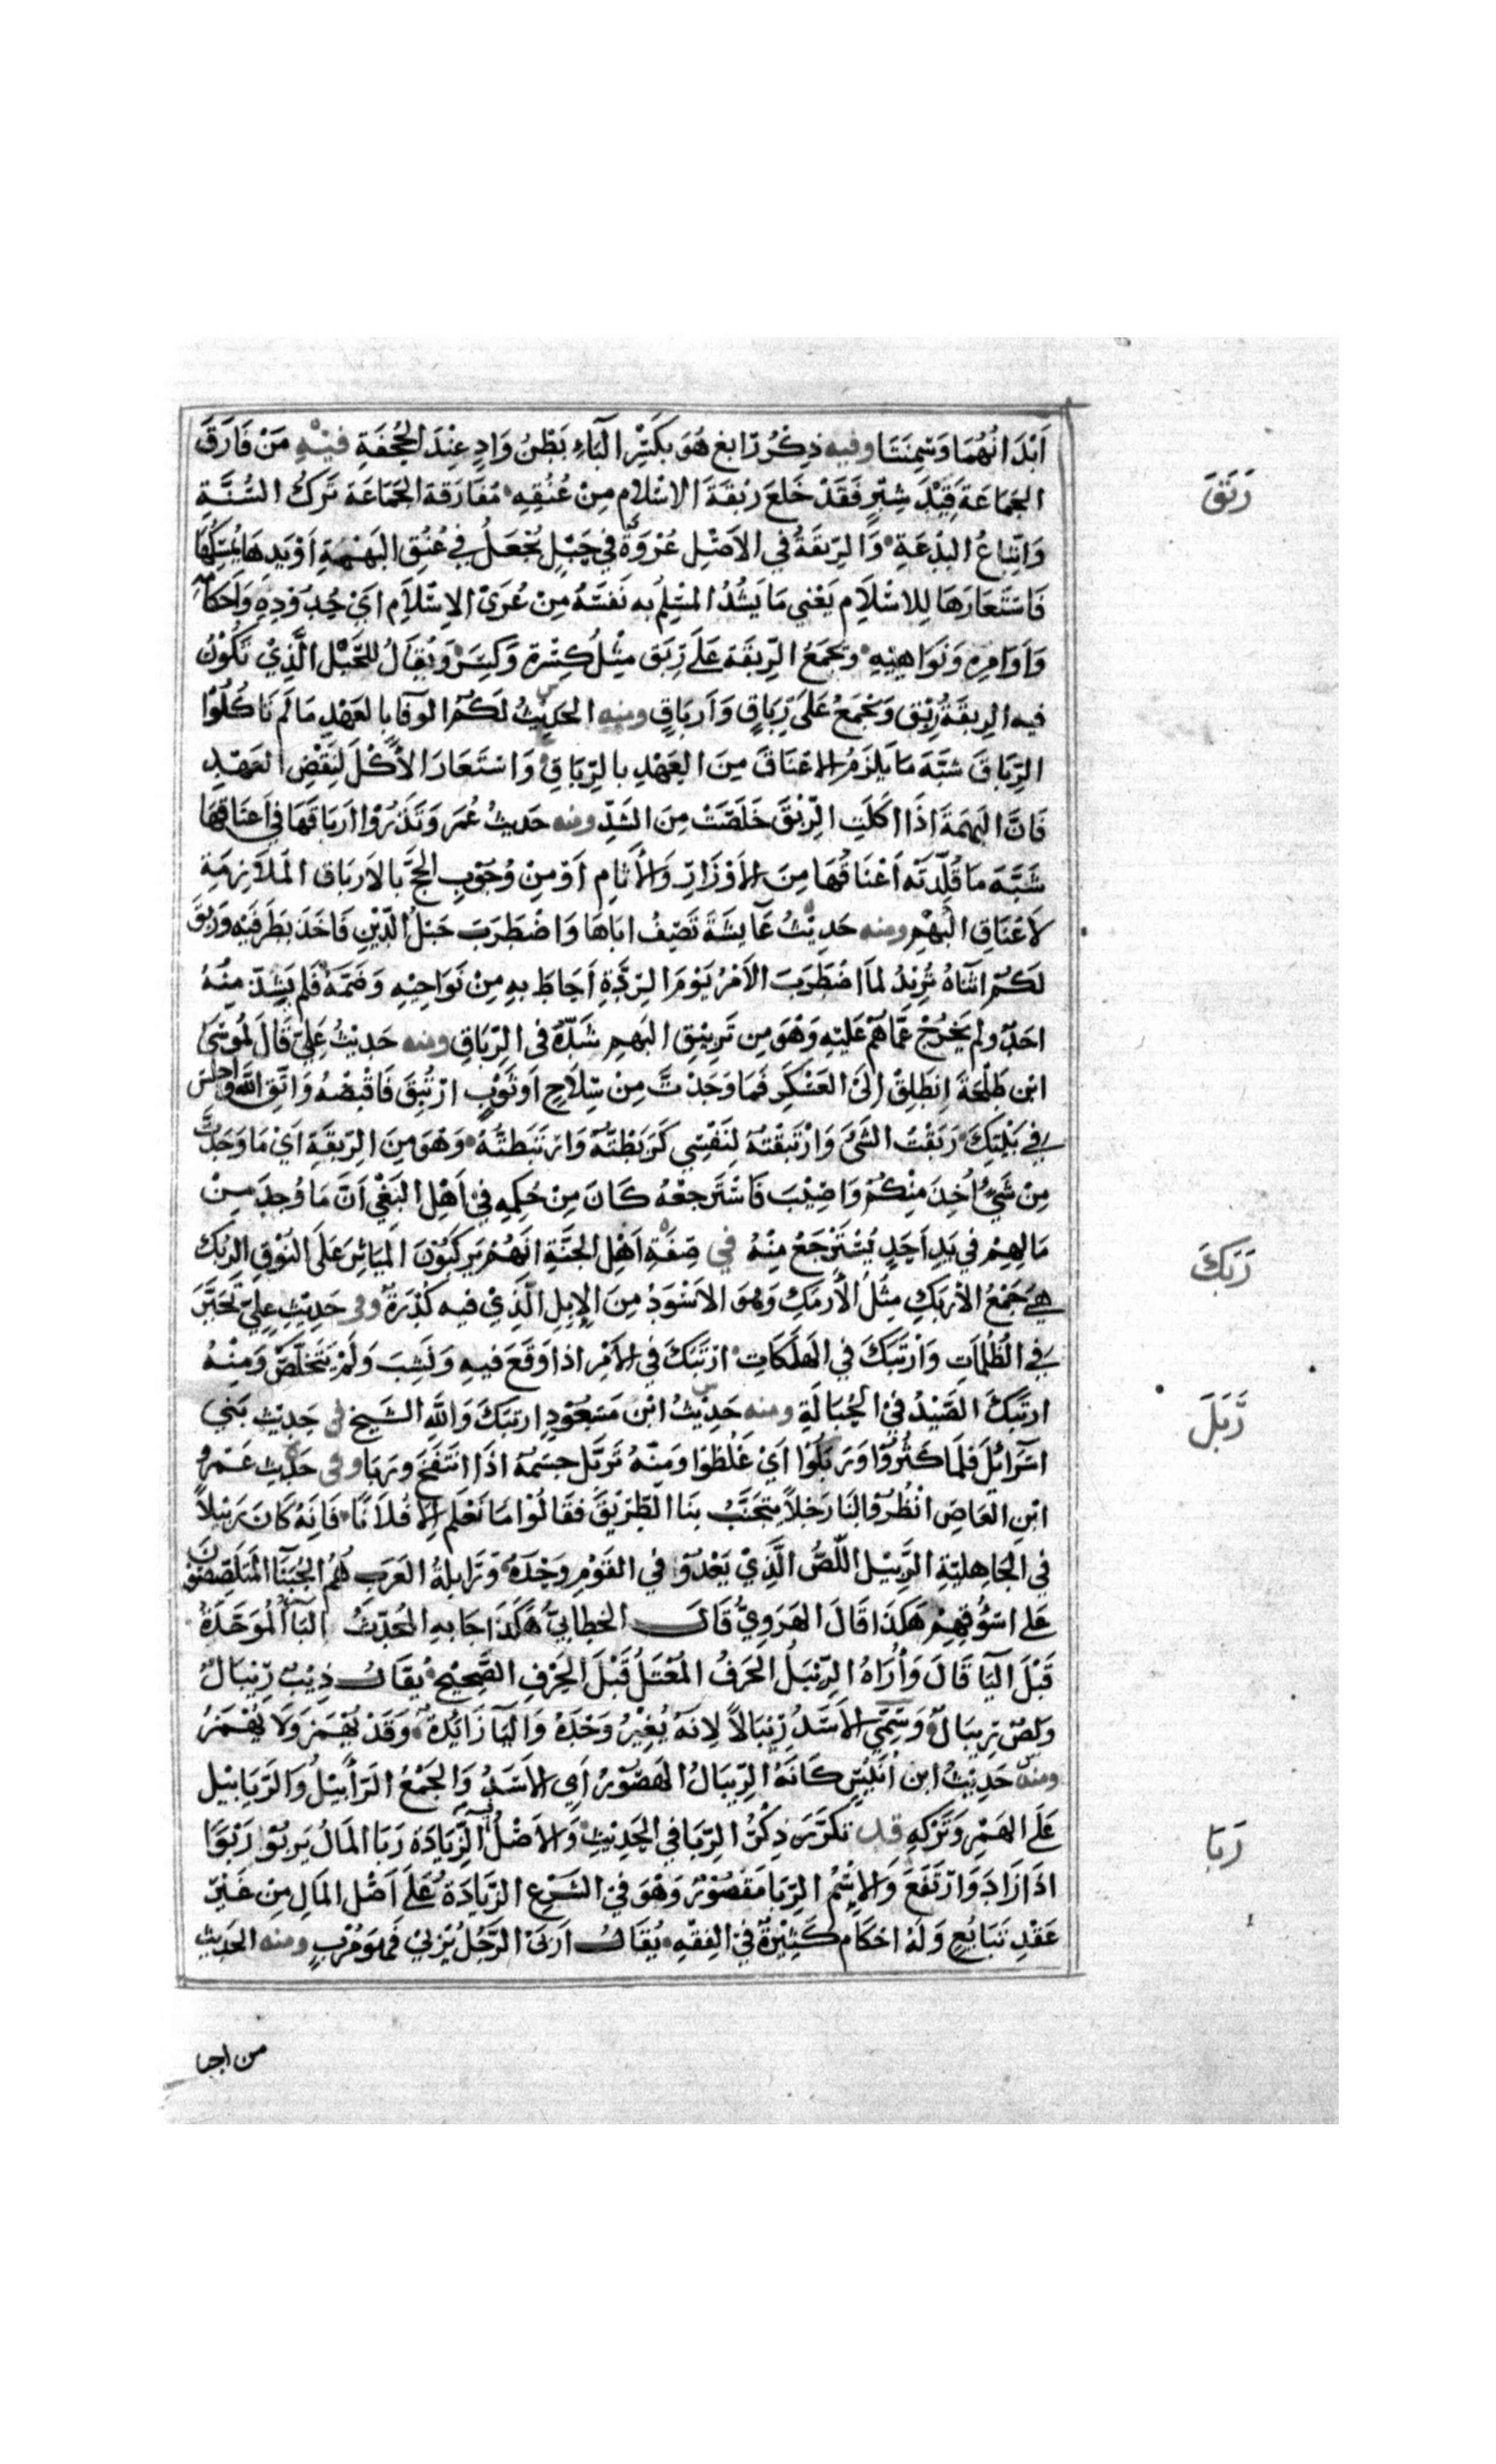 اَبْدَانُهُمَا وَسَمِنَتَا وفيه ذِكْرُ رَابغ هُوَ بِكَسْرِ البَاءِ بَطْنُ وَادٍ عِنْدَ الجُحْفَةِ فيْهِ مَنْ فَارَقَ
رَبَقَ
الجَمَاعَةَ قِيْدَ شِبْرٍ فَقَدْ خَلَعَ رِبْقَةَ الاسْلام مِنْ عُنُقِهِ مُفَارَقة الجَمَاعَة تَرَكُ السُّنَّةِ
وَاتِّبَاعُ البِدْعَةِ وَالرِبقَةُ في الاَصْلِ عُرْوَةٌ في حَبْلٍ تُجْعَلُ في عُنُقِ البَهْيمَةِ اَوْ يَدِهَا تُمْسِكُهَا
فَاسْتَعَارَهَا لِلاسْلاَم يَعْني مَا يَشُدُ المسْلِمُ به نَفسَهُ مِنْ عُرَىْ الاِسْلاَمِ اَىْ حُدُوْدِهِ وَاَحكَامِهِ
وَاَوَامِرِه وَنَوَاهِيْهِ وَتجمَعُ الرِبقَة عَلَى رِبَق مِثْلُ كِسْرَة وَكِسَرْ وَيُقَالُ لِلحَبْل الَّذِيْ تَكُوْنُ
فيه الرِبقَةُ رِبْق وَتُجْمَعُ عَلَى رِبَاقٍ وَاَربَاقٍ ومنه الحَدِيْثُ لَكُمُ الوَفَا بالعَهْدِ مَا لَم تَاكُلُوْا
الرِّبَاقَ شبَّهَ مَا يَلزَمُ الاعْنَاقَ مِنَ العَهْدِ بالرِّبَاقِ وَاسْتَعَارَ الأَكْلَ لنَقْضِ العَهْدِ
فَانَّ البهيمَةَ اذَا اكَلَتِ الرِّبْقَ خَلَصَتْ مِنَ الشَدِّ ومنه حَديثُ عُمَرَ وَتَذَرُوْا اَربَاقَهَا في اَعنَاقِهَا
شَبَّهَ مَا قُلِّدَتْه اَعْنَاقُهَا مِنَ الاَوْزَارِ وَالأَثام اَوْ مِنْ وُجُوْبِ الحَجِّ بالاَربَاق المُلاَزِمَةِ
لاَعْنَاقِ البَهْمِ ومنه حَدِيْثُ عَآيشَةَ تَصِفُ ابَاهَا وَاضْطَرَبَ حَبْلُ الدِّيْنِ فَاخَذَ بطَرفَيْه وَربَّقَ
لَكُمْ اثنَاهُ تُرِيْدُ لمَا اضْطَرَبَ الاَمْرُ يَوْمَ الرِدَّةِ اَحَاطَ بهِ مِنْ نَوَاحِيْهِ وَضَمَّهُ فَلم يَشِذّ مِنْهُ
احَدٌ ولم يَخرُجْ عَمَّا هُمْ عَلَيْهِ وَهْوَ مِن تَرِبيْقِ البَهمِ شَدّهُ فى الرِّبَاقِ ومنه حَديْثُ عَلِيّ قَالَ لمُوْسَىْ
ابْن طَلْحَةَ اِنطَلِقْ اِلَى العَسْكَرِ فَمَا وَجَدْتَ مِنْ سِلاَحٍ اَوثَوْبٍ ارْتُبِقَ فَاقْبْضْهُ وَاتَّقِ اللَّهَ وَاجْلِسْ
في بَيْتِكَ رَبَقْتُ الشَىْ وَارْتَبَقْتهُ لِنَفْسِي كَرَبَطْتَهُ وَارتَبَطتُهُ وَهْوَ مِنَ الرِبقَةِ اَيْ مَا وَجَدْتَ
مِنْ شَيْءٍ اُخِذَ مِنْكُمْ وَاصِيْبَ فَاسْتَرجعْهُ كَانَ مِنْ حُكمِهِ في اَهْلِ البَغْيِ اَنَّ مَا وُجِدَ مِنْ
مَالِهِمْ في يَدِ اَحَدٍ يُسْتَرْجَعُ مِنْهُ في صِفَةِ اَهْلِ الجَنَّةِ انَهُمْ يَركَبُوْنَ المَيَاثِرَ عَلَى النَوْقِ الرُبْكِ
رَبَكَ
هِيَ جَمْعُ الأَربَكِ مِثْلُ الأَرمَكِ وَهْوَ الاَسْوَدُ مِنَ الاِبِلِ الَّذِيْ فيهِ كُدْرَةٌ وفى حَدِيْثِ عَلِيّ تَحَيَّرَ
في الظُلُمَاتِ وَارْتَبَكَ في الهَلَكَاتِ ارْتَبَكَ في الاَمْرِ اذا وَقَعَ فيهِ وَنَشِبَ وَلَمْ يَتَخلَّصْ وَمِنْهُ
ارتَبَكَ الصَيْدُ في الحِبَالَةِ ومنه حَدِيْثُ ابْن مَسْعُوْدٍ ارتَبَكَ وَاللَّهِ الشَيخ فى حَدِيْث بَني
رَبَلَ
اسْرَآئلَ فلَمَا كَثُرُوْا وَرَبَلُوْا اَيْ غَلُظوْا وَمِنْهُ تَرَبَّل جسْمهُ اذَا انتَفَخَ وَرَبَا وفى حَدِيث عَمْرو
ابْنِ العَاصِ انْظُرُوا لنَا رَجْلاً يَتَجَنَّبُ بنَا الطِرِيْقَ فقَالُوْا مَا نَعْلَم الا فُلاَنًا فَانَهُ كَانَ رَبيْلاً
في الجَاهليَّةِ الرَبيْل اللِّصُّ الَّذِيْ يَغْدُوْ في القَوْمِ وَحْدَهُ وَرَابلَةُ العَرَبِ هُمُ الخُبَثَآ المُتَلَصِّصُوْنَ
عَلى اسْوُقِهِمْ هَكَذَا قَالَ الهَرَوِيُّ قَالَ الخطابيُّ هَكَذَا جَا بهِ المُحَدِّثُ البَآ المُوَحَّدَةُ
قَبْلَ اليَا قَالَ وَأُرَاهُ الرِّيْبَلُ الحَرفُ المُعْتَلُ قَبْلَ الحَرْفِ الصَّحِيْحِ يُقَالُ ذِيْبٌ رِيْبَالٌ
وَلصٌ رِيبَالٌ وَسُمِّيَ الاَسَدُ رِيْبَالاً لِانَهُ يُغيْرُ وَحْدَهُ وَاليَا زَائدُةٌ وَقَدْ يُهْمَز وَلاَ يُهْمَزُ
ومنه حَدِيْثُ ابن اُنَيْسٍ كَانَهُ الرِيبَالُ الهَصُوْرُ اَي الاسَدُ وَالجَمْعُ الرَآبيْلُ وَالرَيَابيْل
عَلَى الهَمْزِ وَتَركِهِ قد تكَرَّرَ ذِكْرُ الرِبَا في الحَدِيْثِ وَالاَصْلُ فيه الزِّيَادَة رَبَا المَالُ يَربُوْ رَبْوًا
رَبَا
اذَا زَادَ وَارْتَفَعَ وَالاِسْمُ الرِّبَا مَقصُوْرٌ وَهْوَ في الشَرْعِ الزَّيَادَةُ عَلَى اَصْل المَالِ مِن غَيْر
عَقْدِ تَبَايُعٍ وَلَهُ احْكَام كَثِيْرَةٌ في الفِقْهِ يُقَالُ اَربَىْ الرَّجُلُ يُرْبيْ فَهْوَ مُرْبٍ ومنه الحَديث
من اجبا